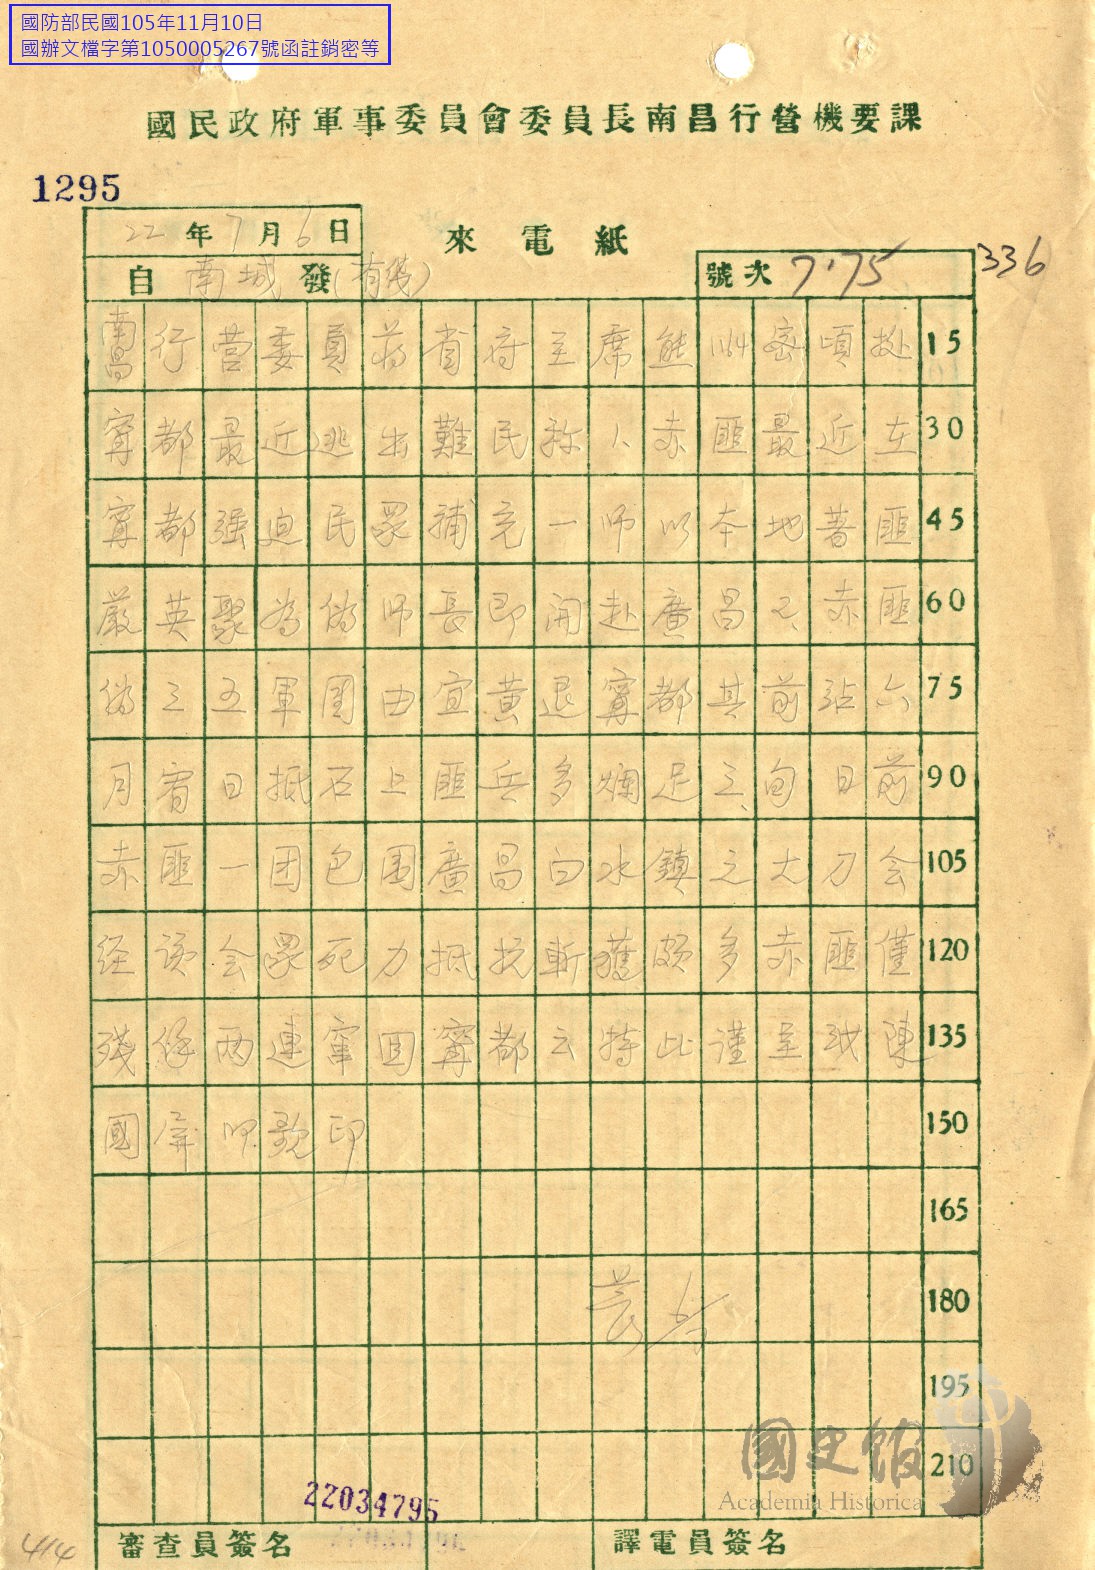 國防部民國105年11月10日
國辦文檔字第1050005267號函註銷密等
國民政府軍事委員會委員長南昌行營機要課
1295
22年7月6日
來電紙
自南城發(有綫)
號次 7·75
336
南昌行营委員蒋省府主席熊 密頃据 15
寗都最近逃出難民称人赤匪最近在 30
寗都强迫民眾補充一师以本地著匪 45
嚴英聚為偽师長即開赴廣昌2、赤匪 60
偽三五軍團由宜黄退寗都其前站六 75
月宥日抵石上匪兵多爛足三、旬日前 90
赤匪一团包围廣昌白水鎮之大刀会 105
经该会眾死力抵抗斬獲頗多赤匪僅 120
殘餘两連竄回寗都云特此谨呈职陳 135
國屏叩歌印 150
165
180
195
210
國史館
Academia Historica
22034795
414
審查員簽名
譯電員簽名